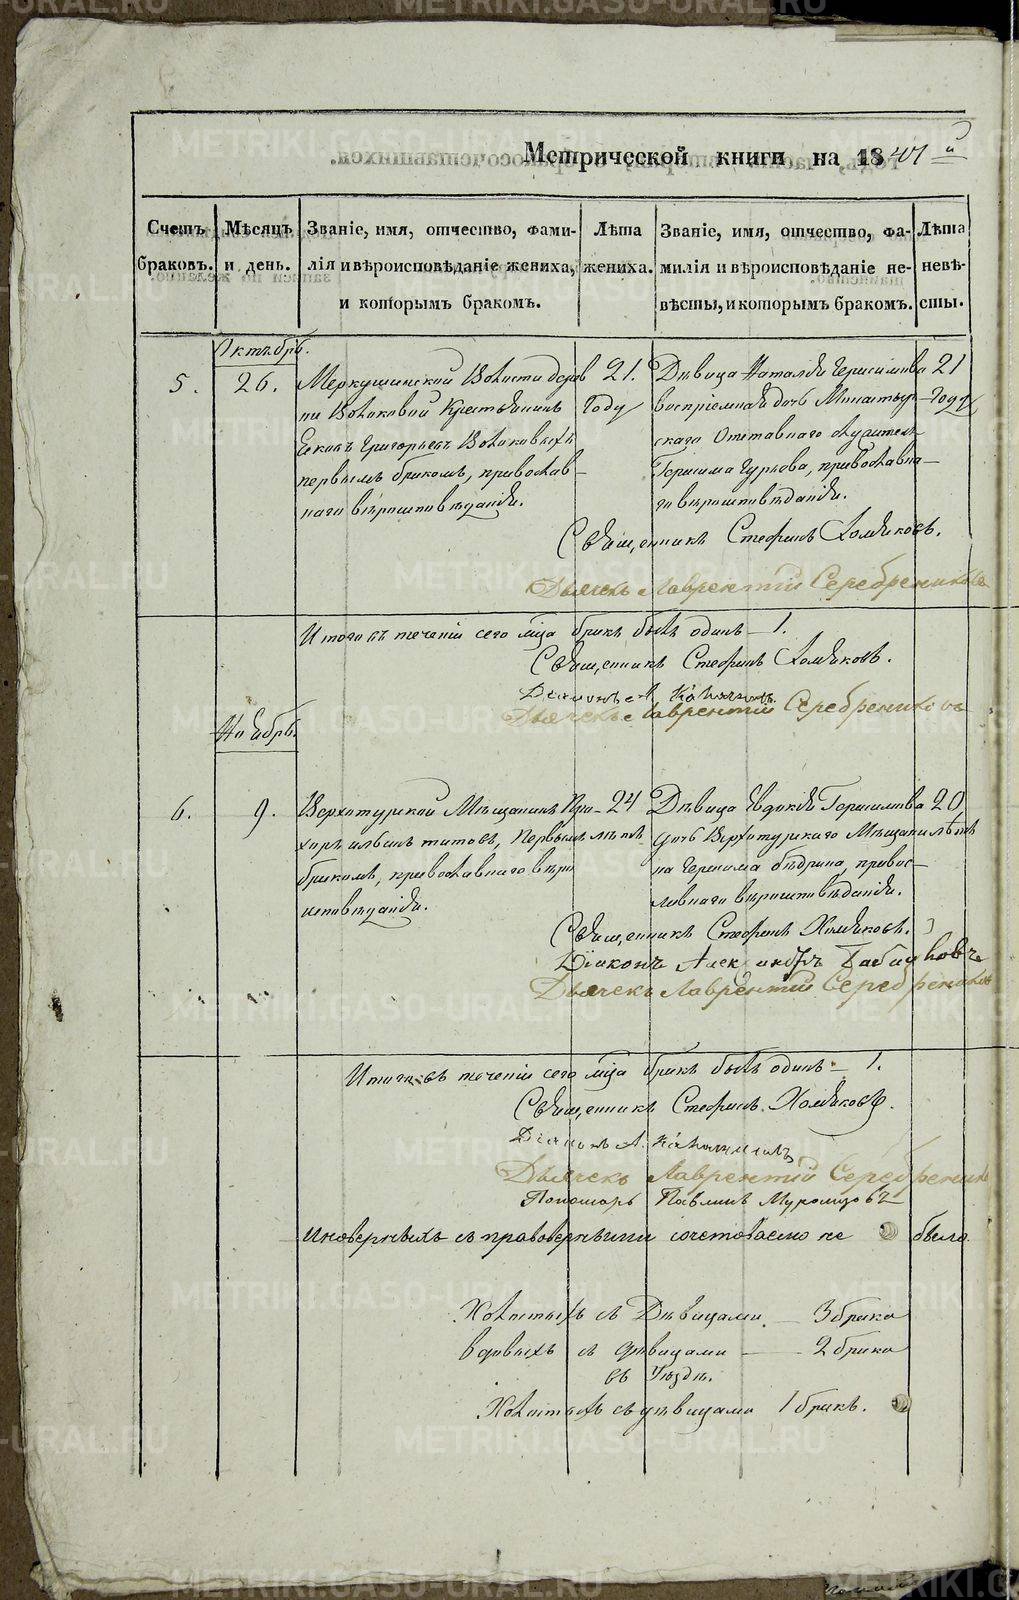 Метрической книги на 1841й
Счетъ браковъ.
Мѣсяцъ и день.
Званіе, имя, отчество, фами-
лія и вѣроисповѣданіе жениха,
и которымъ бракомъ.
Лѣта жениха.
Званіе, имя, отчество, фа-
милія и вѣроисповѣданіе не-
вѣсты, и которымъ бракомъ.
Лѣта невѣ-
сты.
Октябрь.
5.
26.
Меркушинской Волости дерев
ни Волоковой Крестьянинъ
Іаковъ Григорьевъ Волоковыхъ
первымъ бракомъ, православ-
наго вѣроисповѣданія.
21.
Году
Дѣвица Наталія Герасимова
воспріемная дочь Монастыр-
скаго Отставнаго служителя
Герасима Гурьева, православна-
го вѣроисповѣданія.
21
году
Священникъ Стефанъ Хомяковъ.
Дьячекъ Лаврентій Серебрениковъ
Итого въ теченіи сего мѣца бракъ былъ одинъ – 1.
Священникъ Стефанъ Хомяковъ.
Діаконъ А.
Дьячекъ Лаврентій Серебрениковъ
Ноябрь.
6.
9.
Верхотурской Мѣщанинъ
Титовъ, первымъ
бракомъ, православнаго вѣро
исповѣданія.
24
лѣтъ
Дѣвица Евдокія Герасимова
дочь Верхотурскаго Мѣщани
на Герасима Бѣдрина, правос-
лавнаго вѣроисповѣданія.
20
лѣтъ
Священникъ Стефанъ Хомяковъ.
Діаконъ Александръ
Дьячекъ Лаврентій Серебрениковъ
Итого въ теченіи сего мѣца бракъ былъ одинъ – 1.
Священникъ Стефанъ Хомяковъ.
Діаконъ А.
Дьячекъ Лаврентій Серебрениковъ
Пономарь Павлинъ Муромцовъ
Иноверныхъ съ правоверными сочетоваемо не было
Холостыхъ съ Дѣвицами – 3 брака
Вдовыхъ съ дѣвицами – 2 брака
въ Уѣздѣ.
Холостыхъ съ дѣвицами 1 бракъ.
METRIKI.GASO-URAL.RU